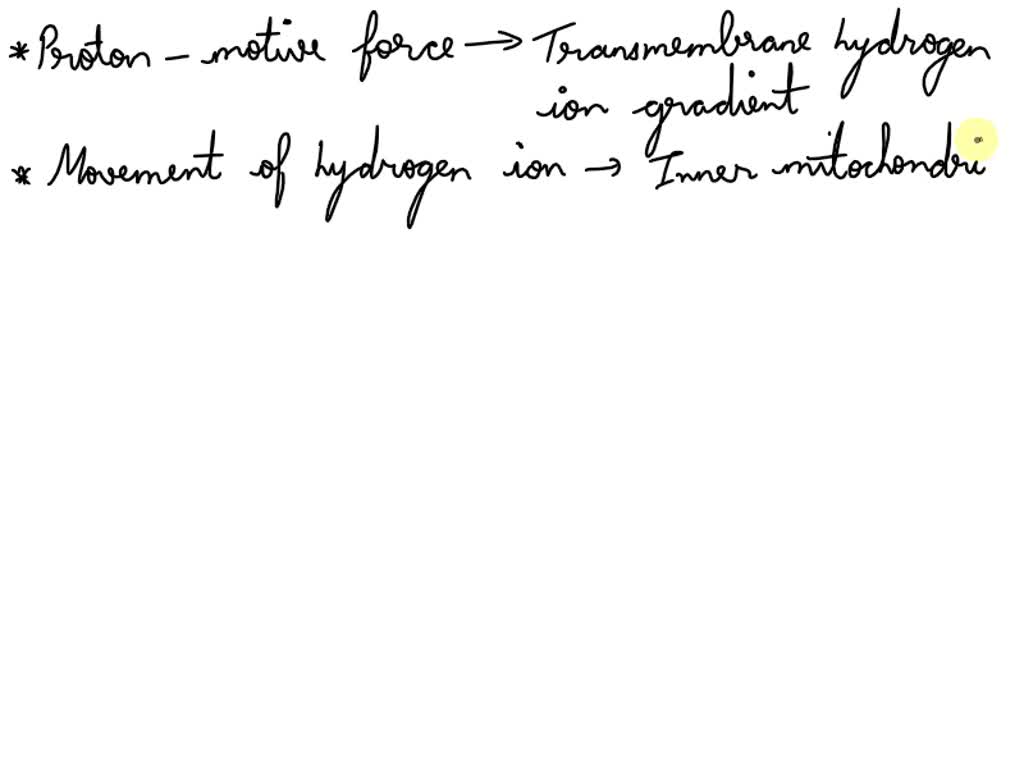 * Proton - motive force → Transmembrane hydrogen
ion gradient
* Movement of hydrogen ion → Inner mitochondri